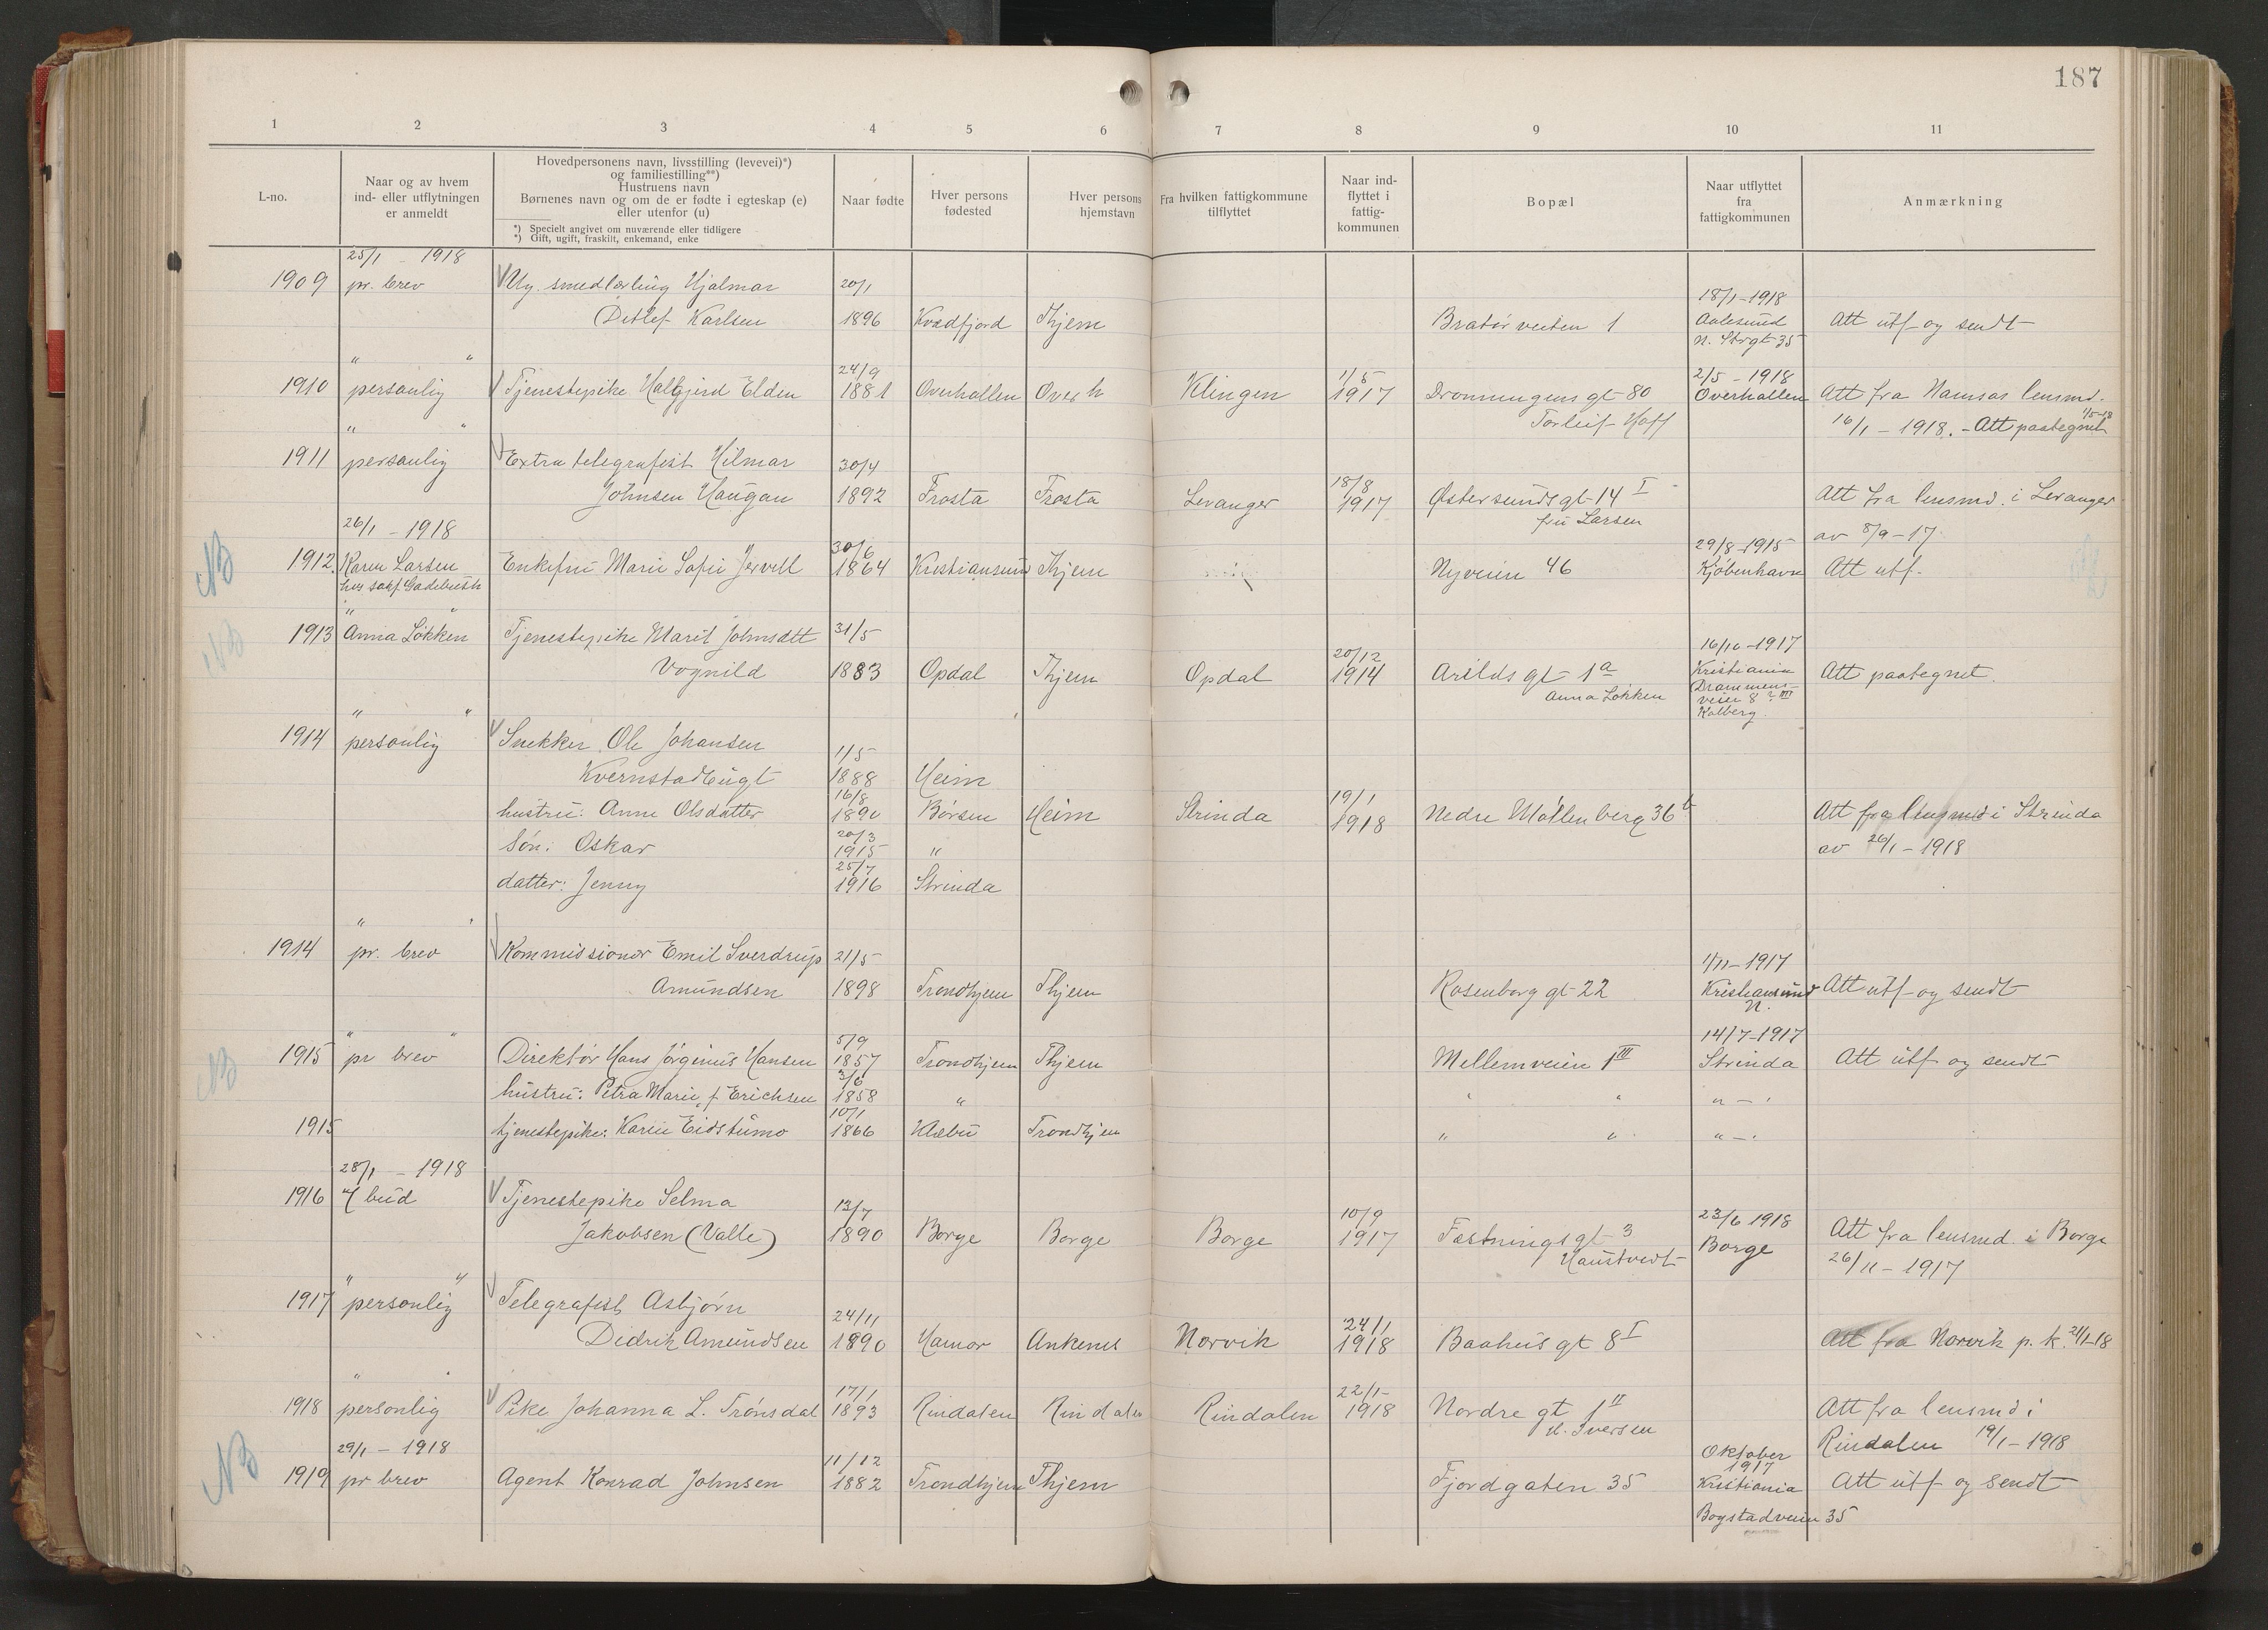 187
1 2 3 4 5 6 7 8 9 10 11
L-no.
Naar og av hvem
ind- eller utflytningen
er anmeldt
Hovedpersonens navn, livsstilling (levevei)*)
og familiestilling**)
Hustruens navn
Børnenes navn og om de er fødte i egteskap (e)
eller utenfor (u)
*) Specielt angivet om nuværende eller tidligere
*) Gift, ugift, fraskilt, enkemand, enke
Naar fødte
Hver persons
fødested
Hver persons
hjemstavn
Fra hvilken fattigkommune
tilflyttet
Naar ind-
flyttet i
fattig-
kommunen
Bopæl
Naar utflyttet
fra
fattigkommunen
Anmærkning
25/1 - 1918
1909 pr. brev Ug. smedlærling Hjalmar 20/1 18/1-1918
Detlef Karlsen 1896 Kvædfjord Thjem Bratørveiten 1 Aalesund Att utf og sendt
N. Strgt 35
" " 24/9 1/5 2/5 - 1918
1910 personlig Tjenestepike Halgjerd Elden 1881 Overhallen Overh Klingen 1917 Dronningensgt 80 Overhallen Att fra Namsos lensmd.
" " Torleif Hoff 16/1 - 1918. - Att paategnet 1/5-18
1911 personlig Extra telegrafist Hilmar 30/4
Johnsen Haugan 1892 Frosta Frosta Levanger 18/8 1917 Østersundsgt 14 I Att fra lensmd. i Levanger
fru Larsen
26/1 - 1918 av 8/9-17
NB 1912. Karen Larsen Enkefru Marie Sofie Jervell 30/6 1864 Kristiansund Thjem Nyveien 46 29/8-1915 Kjøbenhavn Att utf.
hos sakf. Gadebusch
" "
NB 1913 Anna Løkken Tjenestepike Marit Johnsdtt 31/5 16/10-1917
Vognild 1883 Opdal Thjem Opdal 20/12 1914 Arildsgt 1a Kristiania Att paategnet.
Anna Løkken Drammens-
veien 8 III
Kolberg
" "
1914 personlig Snekker Ole Johansen 1/5
Kvernstad ugt 1888 Heim
hustru: Anne Olsdatter 16/8 1890 Børsen Heim Strinda 19/1 1918 Nedre Møllenberg 36b Att fra lensmd i Strinda
søn: Oskar 20/3 1915 " av 26/1-1918
datter: Jenny 25/7 1916 Strinda
" "
1914 pr. brev Kommissionær Emil Sverdrup 21/5 1/11-1917
Amundsen 1898 Trondhjem Thjem Rosenborg gt 22 Kristiansund N. Att utf og sendt
" " 14/7-1917
NB 1915 pr brev Direktør Hans Jørginus Hansen 5/9 1857 Trondhjem Thjem Mellemveien 1 III Strinda Att utf og sendt
hustru: Petra Marie, f. Erichsen 3/6 1858 " " " " - "
1915 tjenestepike: Karen Eidstumo 10/1 1866 Klæbu Trondhjem " " " - "
28/1 - 1918
1916 v/ bud Tjenestepike Selma 13/7 10/9 23/6 1918
Jakobsen (Valle) 1890 Borge Borge Borge 1917 Fæstningsgt 3 Borge Att fra lensmd. i Borge
Haustvedt 26/11-1917
" "
1917 personlig Telegrafist Asbjørn
Didrik Amundsen 24/11 1890 Hamar Ankenes Narvik 24/1 1918 Baahusgt 8 I Att fra Narvik p. k. 21/1-18
" "
1918 personlig Pike Johanna L. Trønsdal 17/1 1893 Rindalen Rindalen Rindalen 22/1- 1918 Nordre gt 1 II Att fra lensmd i
29/1 - 1918 Iversen Rindalen 19/1-1918
NB 1919 pr brev Agent Konrad Johnsen 11/12 1882 Trondhjem Thjem Fjordgaten 35 Oktober 1917 Kristiania Att utf og sendt
Bogstadveien 35